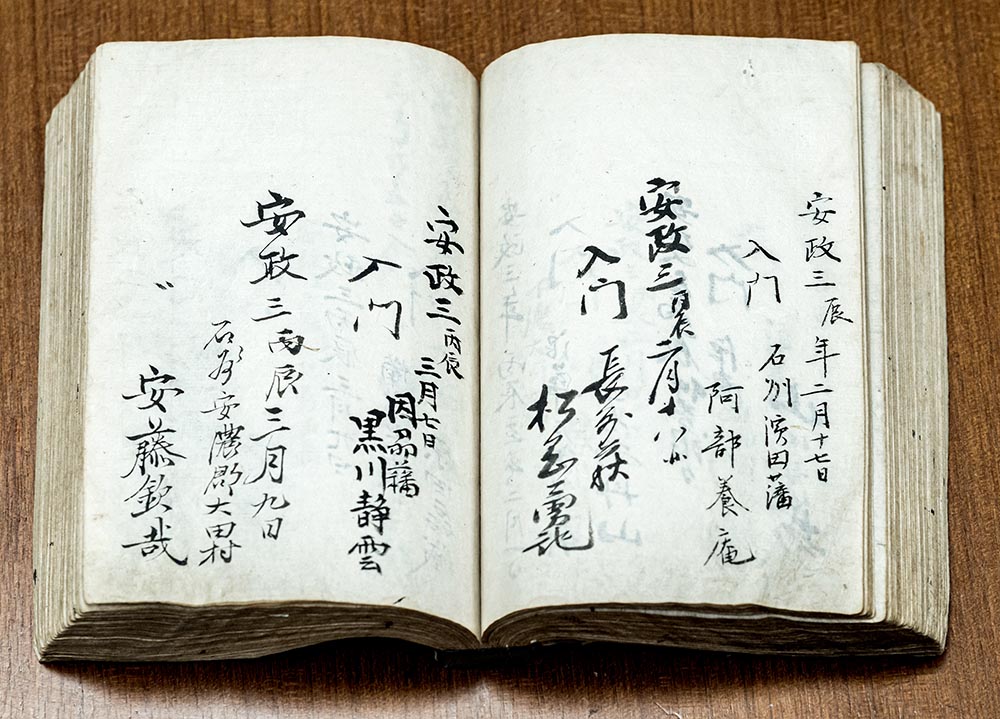 安政三辰年二月十七日
入門
石州濱田藩
阿部養庵
安政三丙辰二月十八
入門
長州萩
安政三丙辰三月七日
入門
因州藩
黒川静雲
安政三丙辰三月九日
〃
石州安濃郡大田村
安藤欽哉